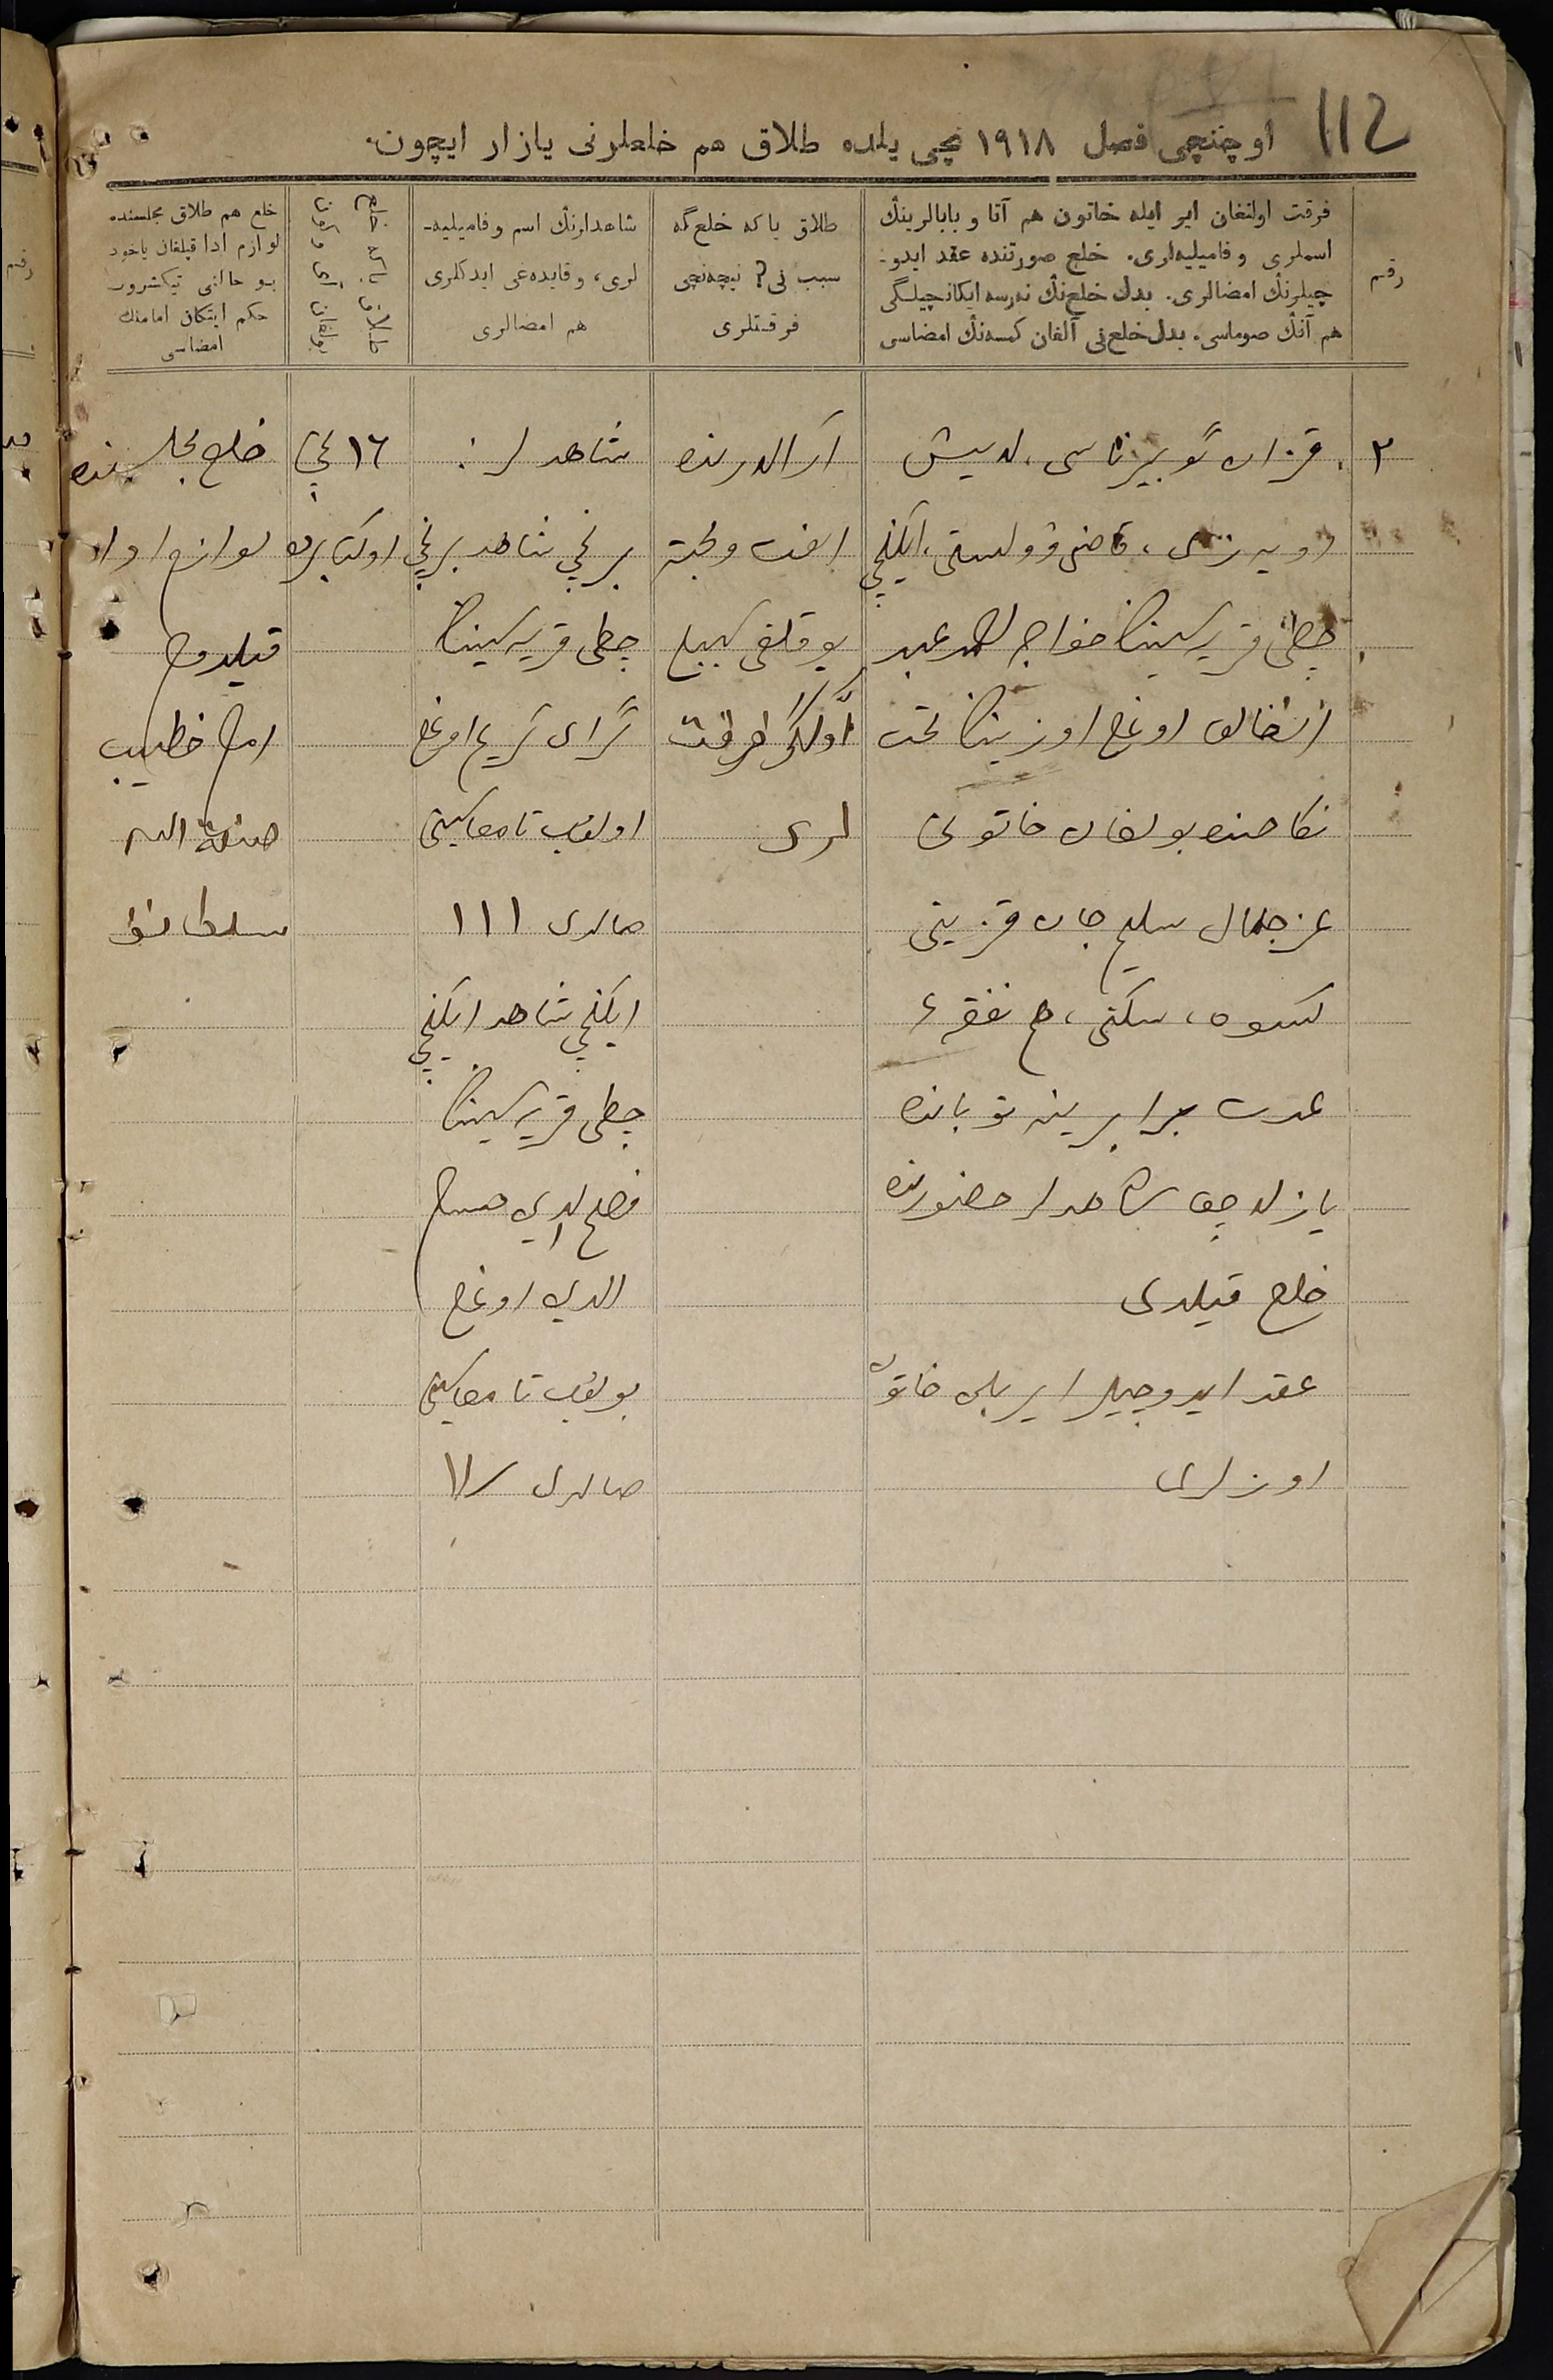 112
اوچنچی فصل ١٩١٨ نچی یلده طلاق هم خلعلرنی یازار ایچون.
رقم
فرقت اولنغان ایر ایله خاتون هم آتا و بابالرینڭ
اسملری و فامیلیه‌لری. خلع صورتنده عقد ایدو-
چیلرنڭ امضالری. بدل خلع‌نڭ نه‌رسه ایکانچیلگی
هم آنڭ صوماسی. بدل خلع‌نی آلغان کمسه‌نڭ امضاسی
طلاق یا که خلع گه
سبب نی؟ نیچه‌نچی
فرقتلری
شاهدلرنڭ اسم و فامیلیه-
لری، و قایده‌غی ایدکلری
هم امضالری
خلع هم طلاق مجلسنده
لوازم ادا قیلغان یاخود
بو حالنی تیکشروب
حکم ایتکان امامنڭ
امضاسی
٣
قزان گوبیرناسی، لدیش
اویه‌زی، ایکنچی
چطی قریه‌سینڭ خواجه احمد عبد
الخالق اوغلی اوزینڭ تحت
نکاحنده بولغان خاتونی
عزجمال سلیم جان قزینی
کسوه، سکنی، هم نفقهٔ
عدت برابرینه توبانده
یازلاچق شاهدلر حضورنده
خلع قیلدی
عقد ایدوچیلر ایر بله خاتون
اوزلری
آرالرنده
الفت و محبت
یوقلقی سببلی
اولگی فرقت
لری
شاهدلر:
برنچی شاهد برنچی
چطی قریه‌سینڭ
گرای کریم اوغلی
اولوب تامغاسینی
صالدی ١١١
ایکنچی شاهد ایکنچی
چطی قریه‌سینڭ
الدین اوغلی
بولوب تامغاسینی
صالدی
١٦ نچی
اوکتابرده
خلع مجلسنده
لوازم ادا
قیلدم
امام خطیب
صنعة الله
سلطانف